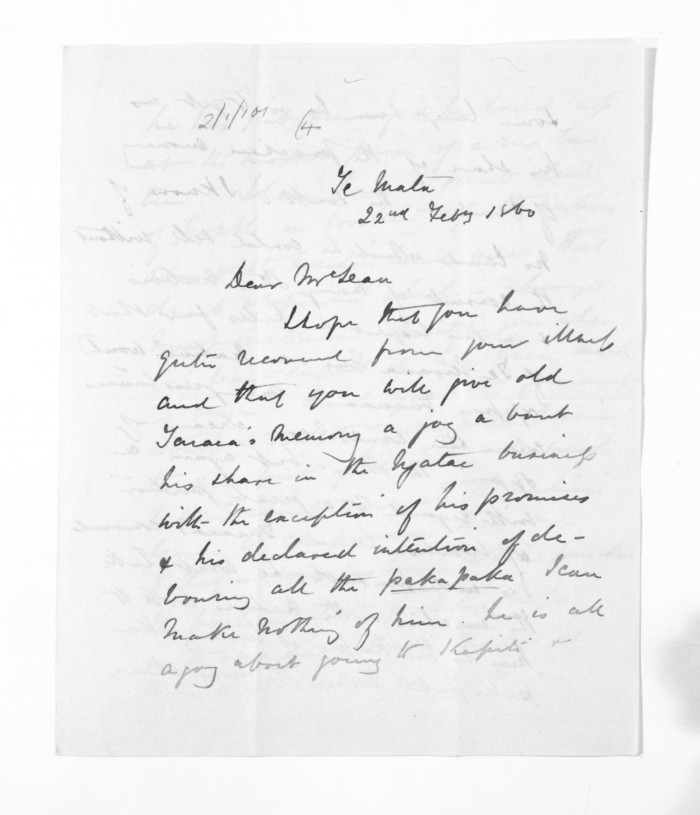 Te Mata
22nd Feby 1860
Dear McLean
I hope that you have
quite recovered from your illness
and that you will give old
Tareia's memory a jog a bout
his share in the business
with the exception of his promises
& his declared intention of de-
vouring all the pakapaka I can
make nothing of him. he is all
agog about going to Kapiti &